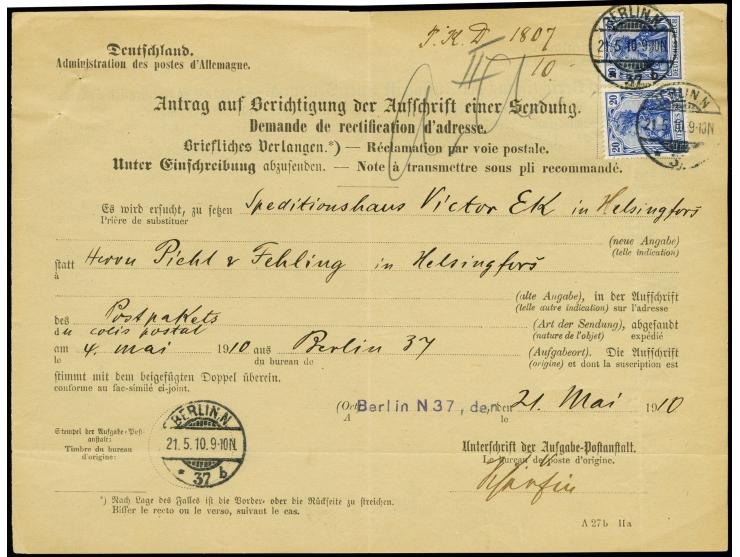 Deutschland.
Administration des postes d'Allemagne.
1807
II 10.
BERLIN.N
21.5.10.9-10N
37 b
DEUTSCHES REICH
20 20
BERLIN.N
21.5.10.9-10N
37
Antrag auf Berichtigung der Aufschrift einer Sendung.
Demande de rectification d'adresse.
Briefliches Verlangen.*) — Réclamation par voie postale.
Unter Einschreibung abzusenden. — Note à transmettre sous pli recommandé.
Es wird ersucht, zu setzen Speditionshaus Victor Ek in Helsingfors
Prière de substituer
(neue Angabe)
(telle indication)
statt Herrn Picht & Fehling in Helsingfors
à
(alte Angabe), in der Aufschrift
(telle autre indication) sur l'adresse
des Postpakets
du colis postal
(Art der Sendung), abgesandt
(nature de l'objet) expédié
am 4. Mai 1910 aus Berlin 37
le du bureau de
(Aufgabeort). Die Aufschrift
(origine) et dont la suscription est
stimmt mit dem beigefügten Doppel überein.
conforme au fac-similé ci-joint.
Berlin N 37, den 21. Mai 1910
A
Stempel der Aufgabe-Post-
anstalt:
Timbre du bureau
d'origine:
BERLIN.N
21.5.10.9-10N.
* 37 b
Unterschrift der Aufgabe-Postanstalt.
Le bureau de poste d'origine.
*) Nach Lage des Falles ist die Vorder- oder die Rückseite zu streichen.
Biffer le recto ou le verso, suivant le cas.
A 27b IIa